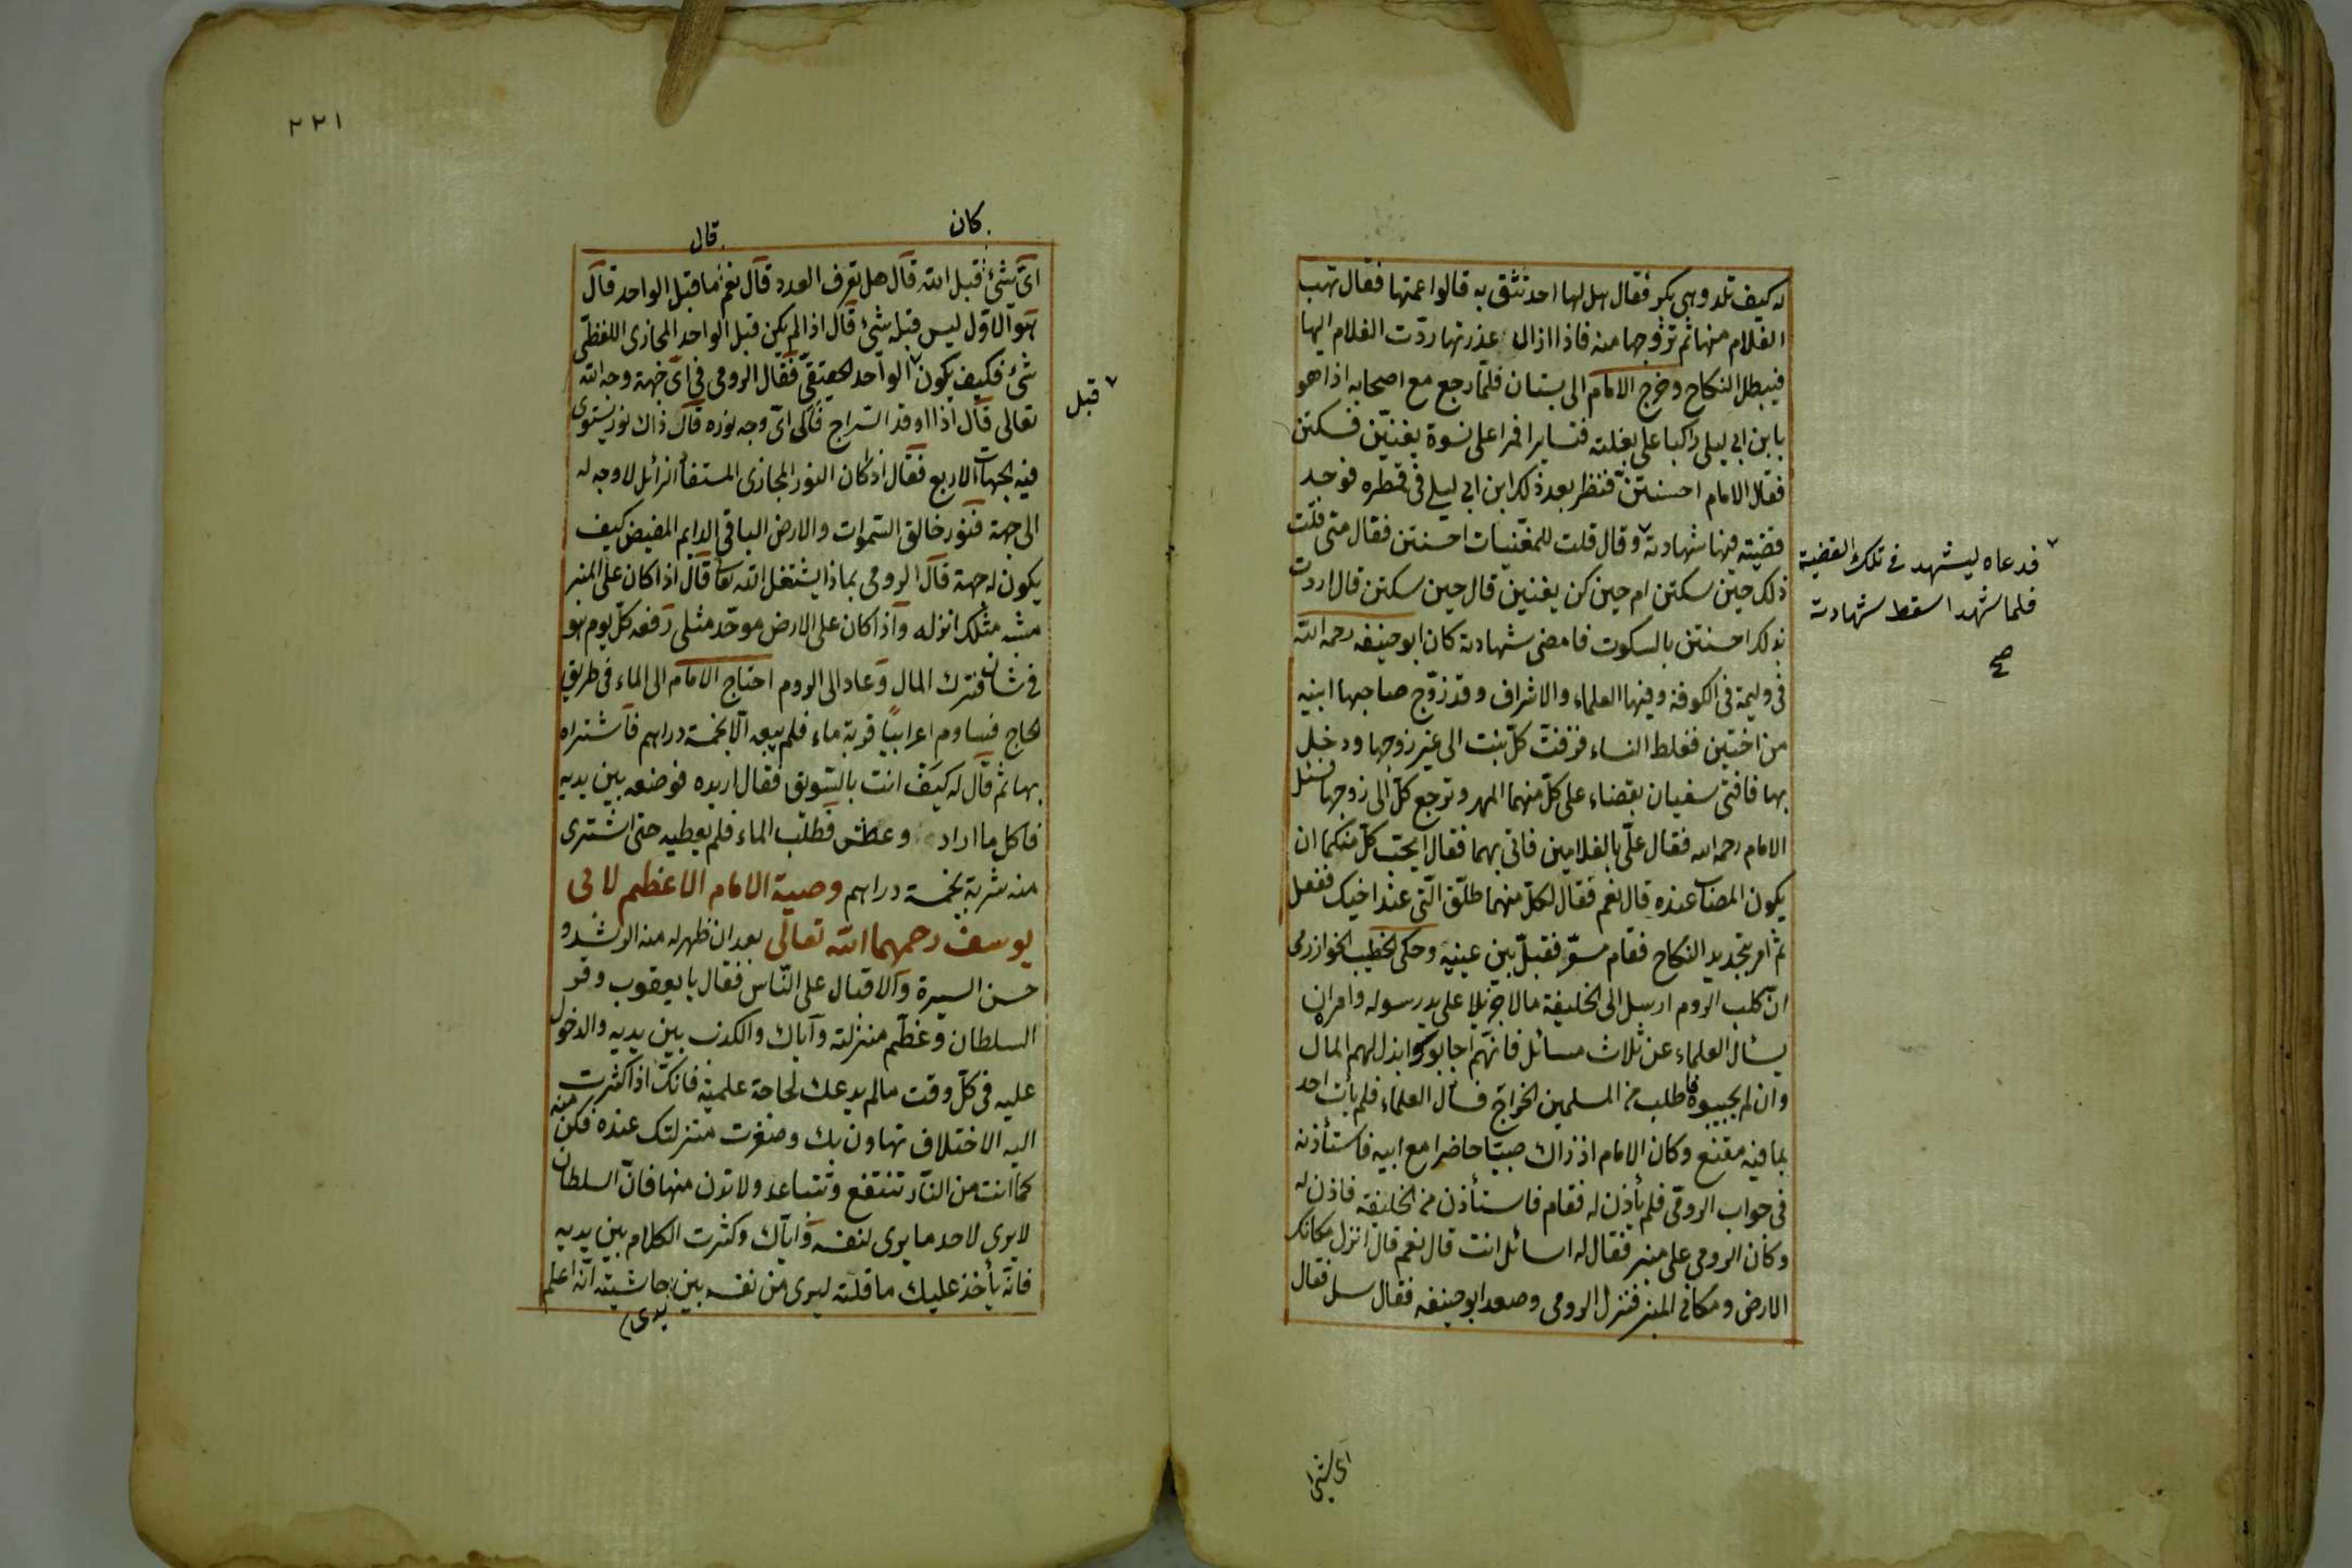 له كيف تلد وهى بكر فقال هل لها احد تثق به قالوا عمتها فقال تهب
الغلام منها ثم تزوجها منه فاذا ازال عذرتها ردّت الغلام اليها
فيبطل النكاح وخرج الامام الى بستان فلما رجع مع اصحابه اذا هو
بابن ابى ليلى راكبا على بغلته فتسايرا فمرا على نسوة يغنين فسكتن
فقال الامام احسنتن فنظر بعد ذلك ابن ابى ليلى فى قمطره فوجد
قضية فيها شهادته وقال قلت للمغنيات احسنتن فقال متى قلت
فدعاه ليشهد فى تلك القضية
فلما شهد اسقط شهادته
صح
ذلك حين سكتن ام حين كن يغنين قال حين سكتن قال اردت
بذلك احسنتن بالسكوت فامضى شهادته كان ابو حنيفه رحمه الله
فى وليمة فى الكوفة وفيها العلماء والاشراف وقد زوّج صاحبها ابنيه
من اختين فغلط النساء فزفت كلّ بنت الى غير زوجها ودخل
بها فافتى سفيان بقضاء على كلّ منهما المهر وترجع كلّ الى زوجها فسئل
الامام رحمه الله فقال علىّ بالغلامين فاتى بهما فقال ايحبّ كلّ منكما ان
يكون المصاب عنده قال نعم فقال لكلّ منهما طلّق الّتى عند اخيك ففعل
ثم امر بتجديد النكاح فقام سفيان فقبّل بين عينيه وحكى الخطيب الخوارزمى
انّ كلب الروم ارسل الى الخليفة مالا جزيلا على يد رسوله وامره ان
يسأل العلماء عن ثلاث مسائل فان هم اجابوك ابذل لهم المال
وان لم يجيبوه فاطلب من المسلمين الخراج فسأل العلماء فلم يأت احد
بما فيه مقنع وكان الامام اذ ذاك صبيّا حاضرا مع ابيه فاستأذنه
فى جواب الرومى فلم يأذن له فقام فاستأذن من الخليفة فاذن له
وكان الرومى على منبر فقال له اسائل انت قال نعم قال انزل مكانك
الارض ومكانى المنبر فنزل الرومى وصعد ابو حنيفه فقال سل فقال
اى شئ
٢٢١
كان
قال
اىّ شئ قبل الله قال هل تعرف العدد قال نعم ما قبل الواحد قال
هو الاوّل ليس قبله شئ قال اذا لم يكن قبل الواحد المجازى اللفظى
شئ فكيف يكون الواحد الحقيقى فقال الرومى فى اى جهة وجه الله
قبل
تعالى قال اذا اوقد السراج فالى اىّ وجه نوره قال ذاك نور يستوى
فيه الجهات الاربع فقال اذا كان النور المجازى المستفاد الزائل لا وجه له
الى جهة فنور خالق السموات والارض الباقى الدايم المفيض كيف
يكون له جهة قال الرومى بماذا يشتغل الله تعالى قال اذا كان على المنبر
مشبه مثلك انزله واذا كان على الارض موحّد مثلى رفعه كلّ يوم هو
فى شان فترك المال وعاد الى الروم احتاج الامام الى الماء فى طريق
الحاج فساوم اعرابيّا قربة ماء فلم يبعه الّا بخمسة دراهم فاشتراه
بها ثم قال له كيف انت بالسويق فقال اريده فوضعه بين يديه
فاكل ما اراد وعطش فطلب الماء فلم يعطيه حتى اشترى
منه شربة بخمسة دراهم وصية الامام الاعظم لابى
يوسف رحمهما الله تعالى بعد ان ظهر له منه الرشد و
حسن السيرة والاقبال على النّاس فقال يا يعقوب وقر
السلطان وعظّم منزلته واياك والكذب بين يديه والدخول
عليه فى كلّ وقت مالم يدعك لحاجة علمية فانك اذا اكثرت
اليه الاختلاف تهاون بك وصغرت منزلتك عنده فكن منه
كما انت من النّار تنتفع وتتباعد ولا تدن منها فانّ السلطان
لا يرى لاحد ما يرى لنفسه وايّاك وكثرت الكلام بين يديه
فانّه يأخذ عليك ما قلته ليرى من نفسه بين حاشيته انّه اعلم
يدى